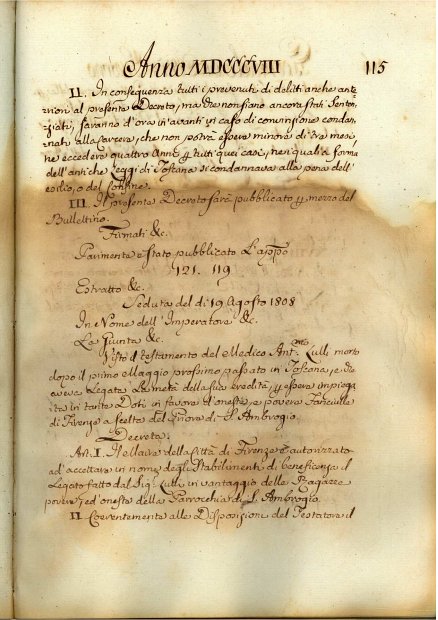 Anno MDCCCVIII 115
II. In conseguenza tutti i prevenuti di delitti anche ante=
riori al presente Decreto, ma che non siano ancora stati Senten=
ziati, saranno d'ora in avanti in caso di convinzione condan=
nati alla carcere, che non potrà essere minore di tre mesi,
ne eccedere quattro Anni p tutti quei casi, nei quali a forma
dell'antiche Leggi di Toscana si condannava alla pena dell'
esilio, o del Confine.
III. Il presente Decreto sarà pubblicato p mezzo del
Bullettino.
Firmati &c.
Parimente è stato pubblicato L'appo
121. 119
Estratto &c.
Seduta del dì 19 Agosto 1808
In Nome dell'Imperatore &c.
La Giunta &c.
Visto il testamento del Medico Ant.° Lulli morto
dopo il primo Maggio prossimo passato in Toscana, e che
aveva Legata La metà della sua eredità, p essere impiega
ta in tante Doti in favore d'oneste, e povere Fanciulle
di Firenze a scelta del Priore di S. Ambrogio.
Decreta.
Art. I. Il Maire della Città di Firenze è autorizzato
ad'accettare in nome degli Stabilimenti di beneficenza il
Legato fatto dal Sig.r Lulli in vantaggio delle Ragazze
povere, ed'oneste della Parrocchia di S. Ambrogio.
II. Coerentemente alle Disposizioni del Testatore il